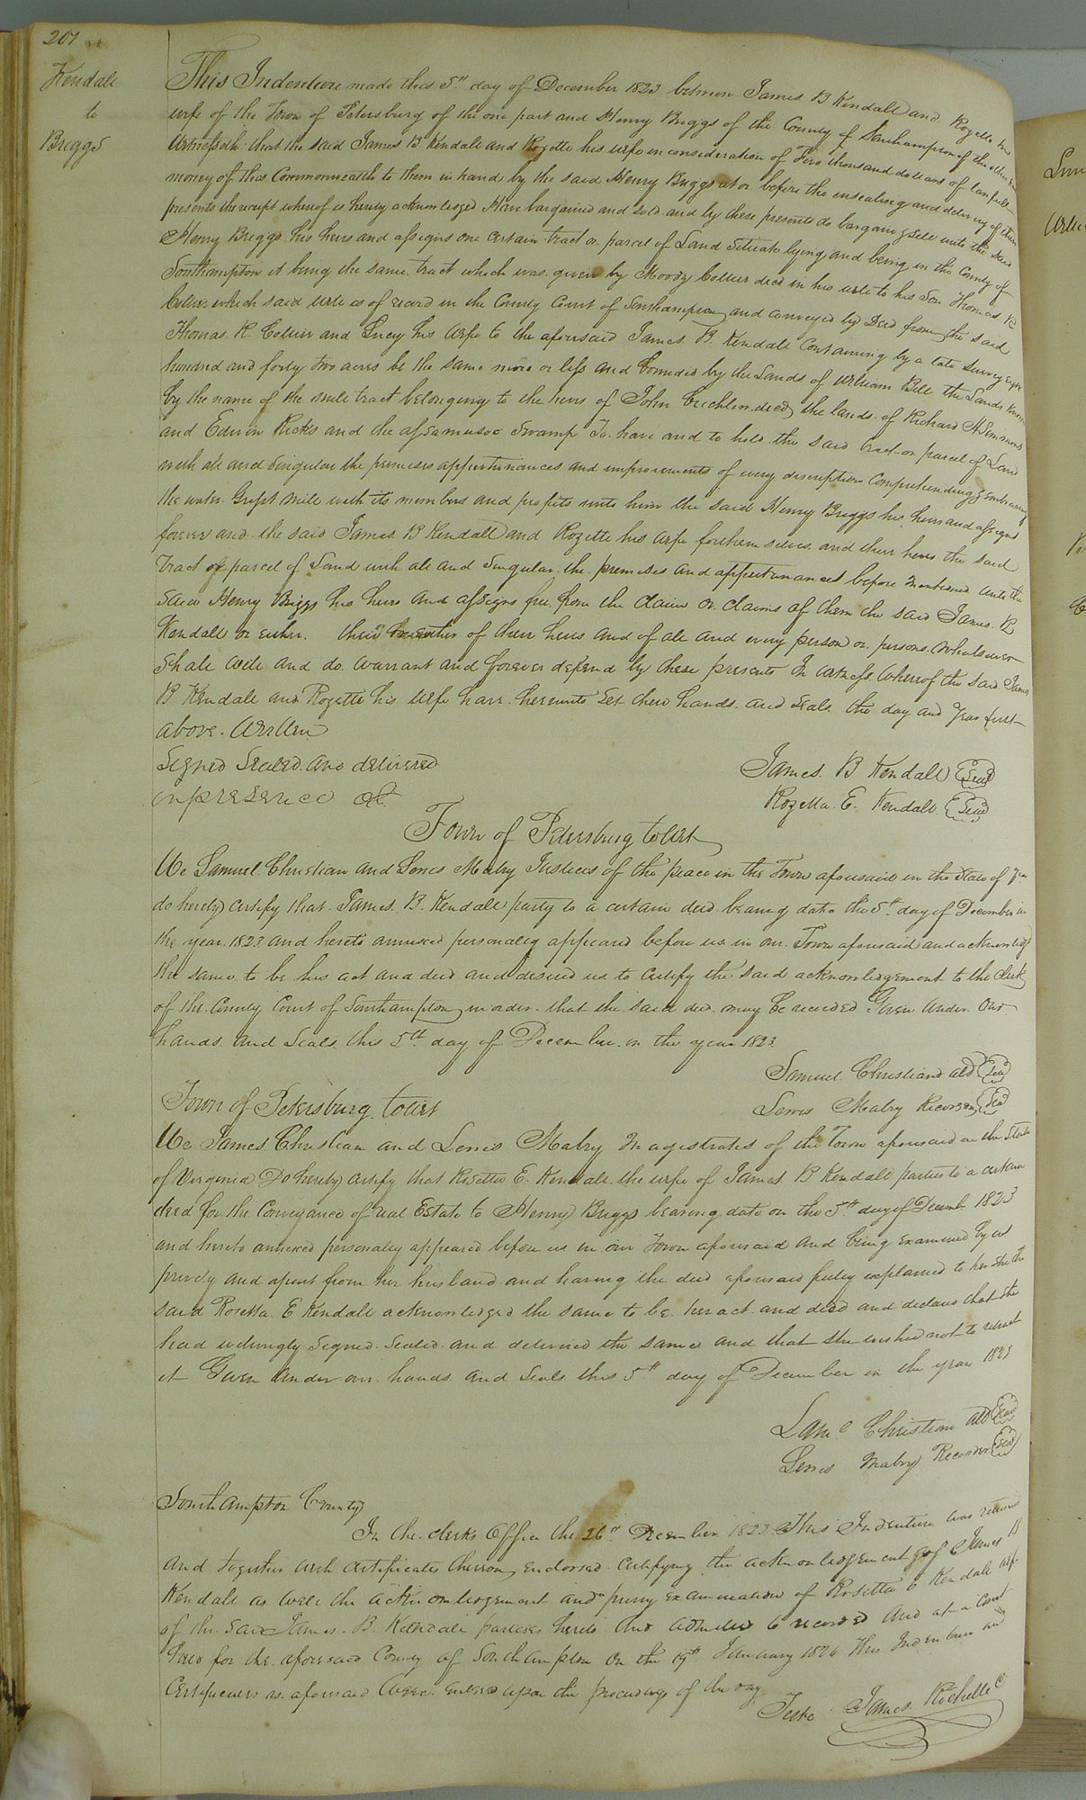 207
Kendall
to
Briggs
This Indenture made this 5th day of December 1823 between James B Kendall and Rozette his
wife of the Town of Petersburg of the one part and Henry Briggs of the County of Southampton of the other part
Witnesseth that the said James B Kendall and Rozette his wife in consideration of Five thousand dollars of lawfull
money of this Commonwealth to them in hand by the said Henry Briggs at or before the ensealing and delivery of these
presents the receipt whereof is hereby acknowledged Have bargained and sold and by these presents do bargain & sell unto the said
Henry Briggs his heirs and assigns one certain tract or parcel of Land Situate lying and being in the County of
Southampton it being the same tract which was given by Moody Collier decd in his will to his Son Thomas R
Collier which said will is of record in the County Court of Southampton and conveyed by Deed from the said
Thomas R Collier and Lucy his wife to the aforesaid James B. Kendall Containing by a late Survey
hundred and forty two acres be the same more or less and bounded by the Lands of William Bell the Lands known
by the name of the mill tract belonging to the heirs of John Crichlow decd, the lands of Richard H Simmons
and Edwin Ricks and the Assamusoc Swamp To have and to hold the said tract or parcel of Land
with all and Singular the premises appurtenances and improvements of every description Comprehending & embracing
the water Grist mill with its members and profits unto him the said Henry Briggs his heirs and assigns
forever and the said James B Kendall and Rozette his wife for them selves and their heirs the said
Tract or parcel of Land with all and Singular the premises and appurtenances before mentioned unto the
said Henry Briggs his heirs and assigns free from the claim or claims of them the said James B
Kendall or either their of their heirs and of all and every person or persons Whatsoever
Shall will and do warrant and forever defend by these presents In witness Whereof the said James
B Kendall and Rozette his wife have hereunto Set their hands and Seals the day and year first
above. Written
Signed Sealed and delivered
in presence of
James. B Kendall Seal
Rozetta. E. Kendall Seal
Town of Petersburg to wit
We Samuel Christian and Lewis Mabry Justices of the peace in the Town aforesaid in the State of Va
do hereby certify that James. B. Kendall party to a certain deed bearing date the 5th day of December in
the year 1823 and hereto annexed personally appeared before us in our Town aforesaid and acknowledged
the same to be his act and deed and desired us to certify the said acknowledgement to the Clerk
of the County Court of Southampton in order that the said deed may be recorded Given under Our
hands and Seals this 5th day of December in the year 1823
Samuel Christian ald Seal
Lewis Mabry Recorder Seal
Town of Petersburg towit
We James Christian and Lewis Mabry Magistrates of the Town aforesaid in the State
of Virginia Do hereby certify that Rosetta E. Kendall the wife of James B Kendall parties to a certain
deed for the Conveyance of real Estate to Henry Briggs bearing date on the 5th day of Decemb 1823
and hereto annexed personally appeared before us in our Town aforesaid and being Examined by us
privily and apart from her husband and having the deed aforesaid fully explained to her She the
said Rosetta. E Kendall acknowledged the same to be her act and deed and declared that She
had willingly Signed. Sealed and delivered the same and that she wished not to retract
it Given under our hands and Seals this 5th day of December in the year 1823
Christian ald Seal
Lewis Mabry Recorder Seal
Southampton County
In the clerks Office the 26th December 1823 This Indenture was returned
and together with certificates thereon endorsed certifying the acknowledgement of James B
Kendall as well the acknowledgement and privy Examination of Rosetta E Kendall wife
of the said James. B. Kendall parties hereto And admitted to record And at a Court
held for the aforesaid County of Southampton on the 19th January 1824 This Indenture and
Certificates as aforesaid Were entered upon the proceedings of the day
Teste James Rochelle C